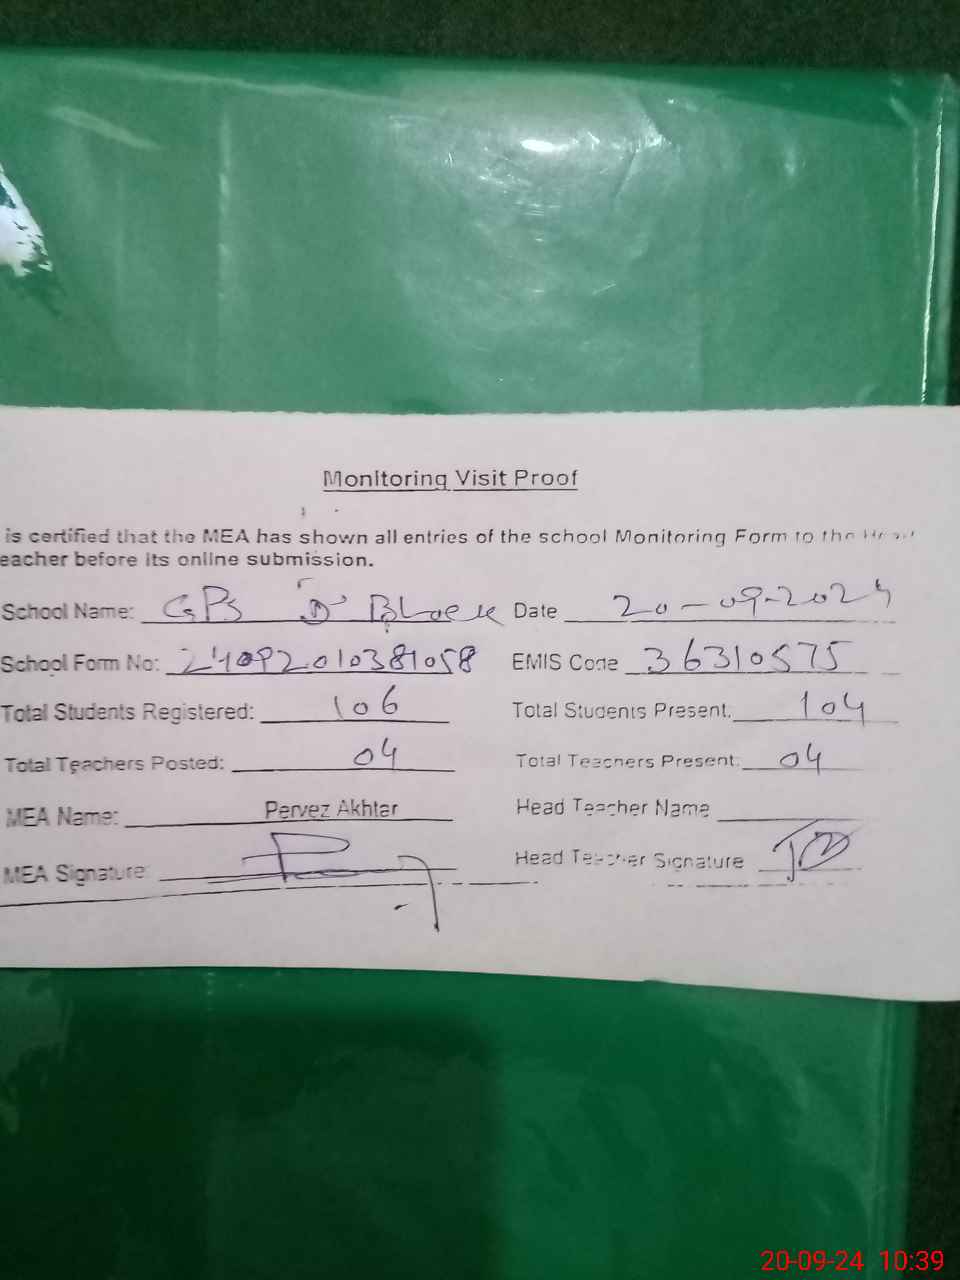 Monitoring Visit Proof
is certified that the MEA has shown all entries of the school Monitoring Form to the Head
eacher before its online submission.
School Name: GPS 'D' Block Date 20-09-2024
School Form No: 24092010381058 EMIS Code 36310575
Total Students Registered: 106 Total Students Present: 104
Total Teachers Posted: 04 Total Teachers Present: 04
MEA Name: Pervez Akhtar Head Teacher Name
MEA Signature: Head Teacher Signature
20-09-24 10:39